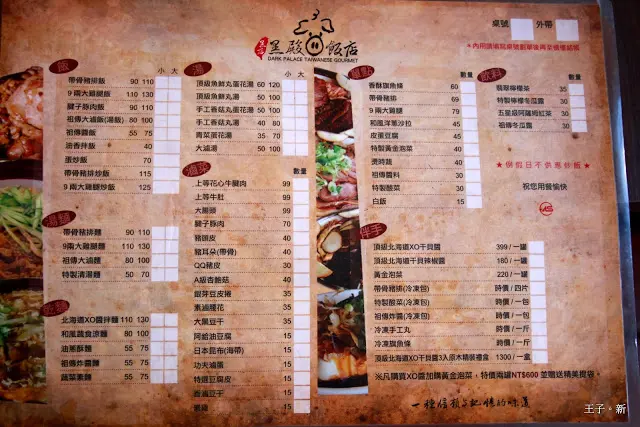 黑殿飯店
DARK PALACE TAIWANESE GOURMET
桌號
外帶
飯
小 大
帶骨豬排飯 90 110
9兩大雞腿飯 110 130
腱子豚肉飯 90 110
祖傳大滷飯(湯飯) 80 100
祖傳醬飯 55 75
油香拌飯 40
蛋炒飯 75
帶骨豬排炒飯 115
9兩大雞腿炒飯 145
湯麵
小 大
帶骨豬排麵 90 110
9兩大雞腿麵 110 130
祖傳大滷麵 80 100
特製清湯麵 50 70
北海道XO醬拌麵 110 130
和風蔬食涼麵 80 100
油蔥酥麵 55 75
祖傳炸醬麵 55 75
蔬菜素麵 55 75
湯
小 大
頂級魚鮮丸蛋花湯 60 120
頂級魚鮮丸湯 50 100
手工香菇丸蛋花湯 50
手工香菇丸湯 40
青菜蛋花湯 35
大滷湯 50
滷菜
數量
上等花心牛腱肉 99
上等牛肚 99
大腸頭 99
腱子豚肉 50
豬頭皮 40
豬耳朵(帶骨) 40
QQ豬皮 30
A級杏鮑菇 40
銀芽豆皮捲 35
素滷腰花 35
大黑豆干 35
阿給油豆腐 15
日本昆布(海帶) 15
功夫滷蛋 15
特選豆腐皮 15
香滷豆干 15
15
數量
香酥旗魚條 60
帶骨豬排 69
9兩大雞腿 79
和風洋蔥沙拉 45
皮蛋豆腐 45
特製黃金泡菜 40
燙時蔬 40
祖傳醬料 30
特製酸菜 30
白飯 15
飲料
數量
翡翠檸檬茶 35
特製檸檬冬瓜露 30
五星級阿薩姆紅茶 30
祖傳冬瓜露 30
★例假日不供應炒飯★
祝您用餐愉快
伴手
頂級北海道XO干貝醬 399/一罐
頂級北海道干貝辣椒醬 180/一罐
黃金泡菜 220/一罐
帶骨豬排(冷凍包) 時價/四片
特製酸菜(冷凍包) 時價/一包
祖傳炸醬(冷凍包) 時價/一包
冷凍手工丸 時價/一斤
冷凍旗魚條 時價/一斤
頂級北海道XO干貝醬3入原木精裝禮盒 1300/一盒
※凡購買XO醬加購黃金泡菜,特價兩罐NT$600 並贈送精美提袋。
一種信賴與記憶的味道
王子。新